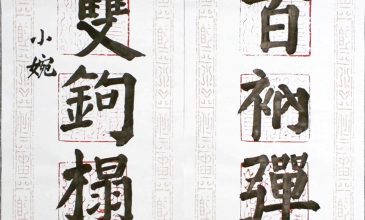 百衲彈
雙鉤榻
小婉